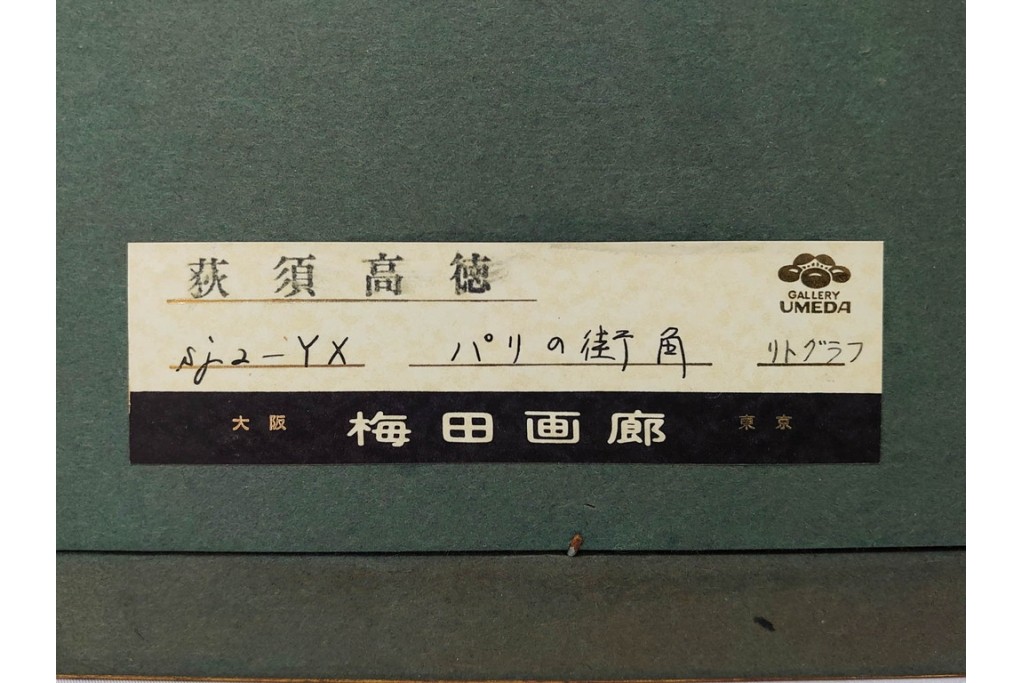 荻須高徳
GALLERY
UMEDA
sj2-YX パリの街角 リトグラフ
大阪 梅田画廊 東京